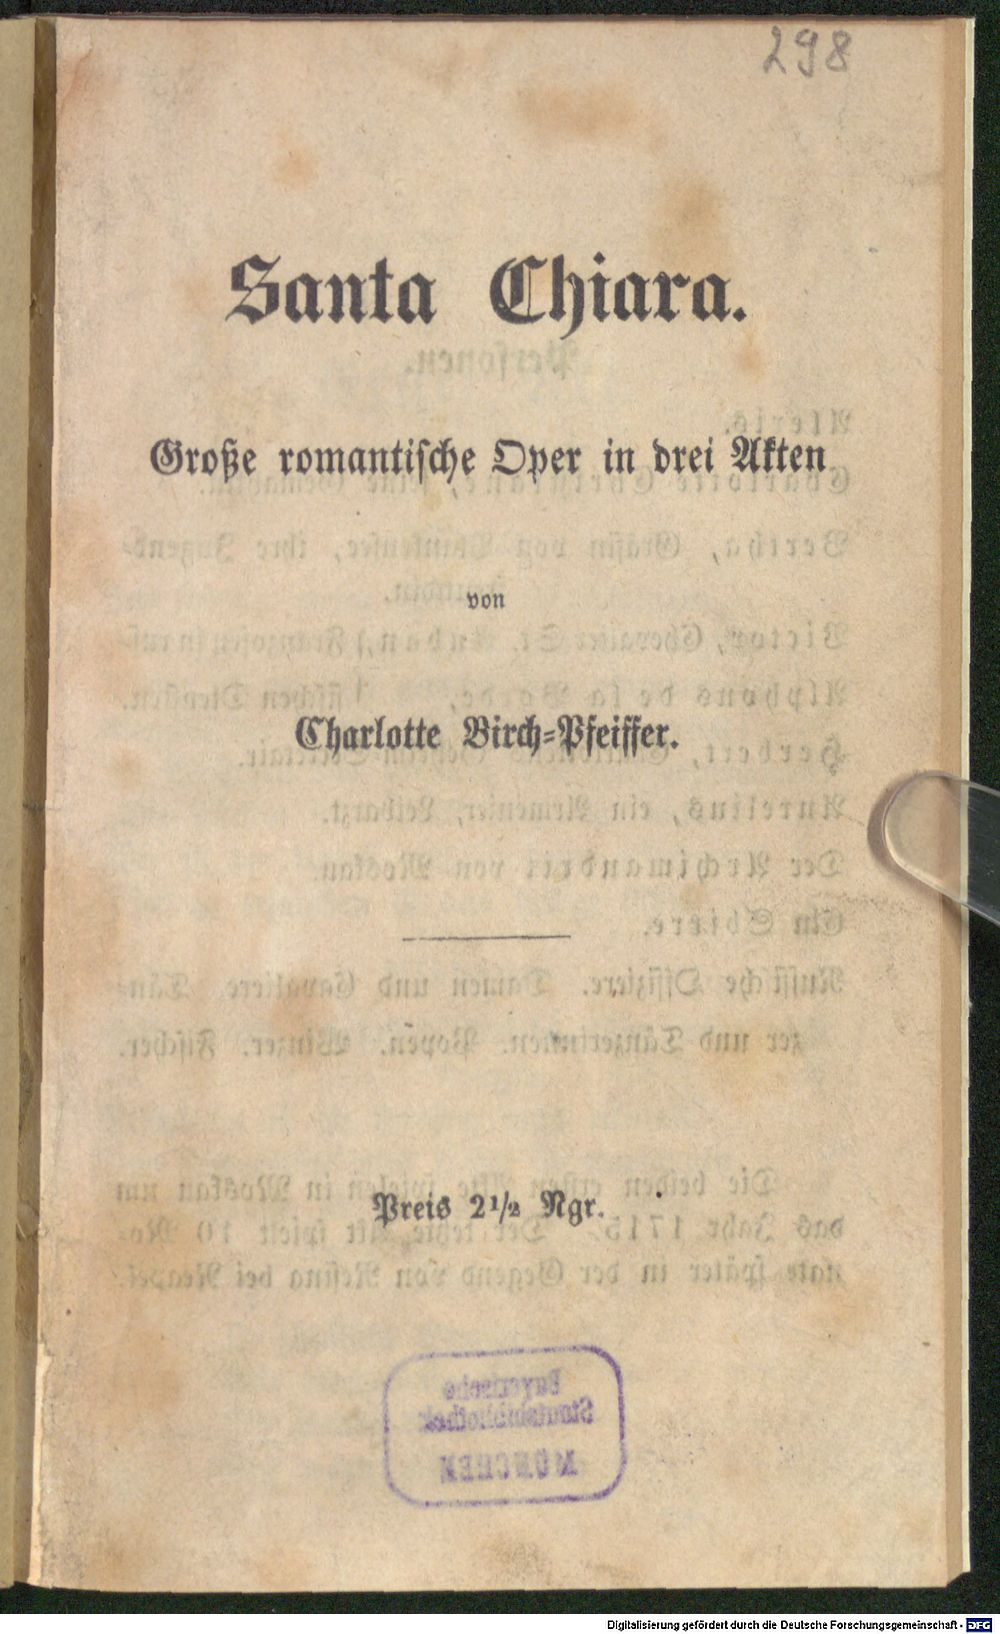 298
Santa Chiara.
Große romantische Oper in drei Akten
von
Charlotte Birch-Pfeiffer.
Preis 2½ Ngr.
Bayerische
Staatsbibliothek
MÜNCHEN
Digitalisierung gefördert durch die Deutsche Forschungsgemeinschaft - DFG